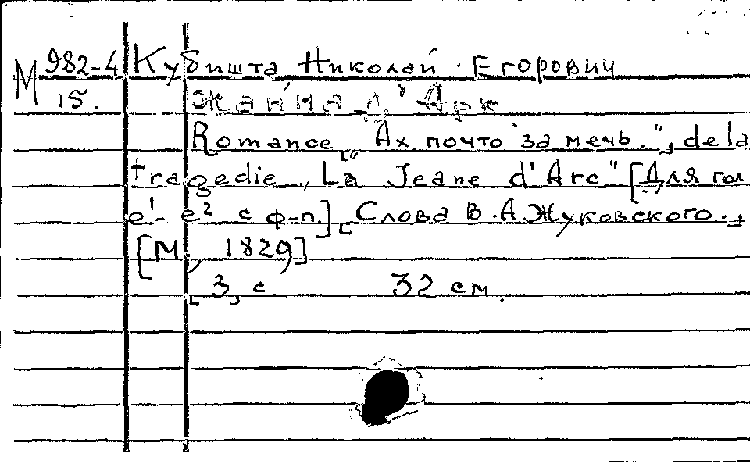 М 982-4 Кубишта Николай Егорович
15. Жанна д'Арк
Romance „Ах почто за мечь.", de la
tragedie „La Jeane d'Arc" [Для гол
e¹- e² с ф-п.] Слова В.А.Жуковского.,
[М, 1829]
[3] с 32 см.